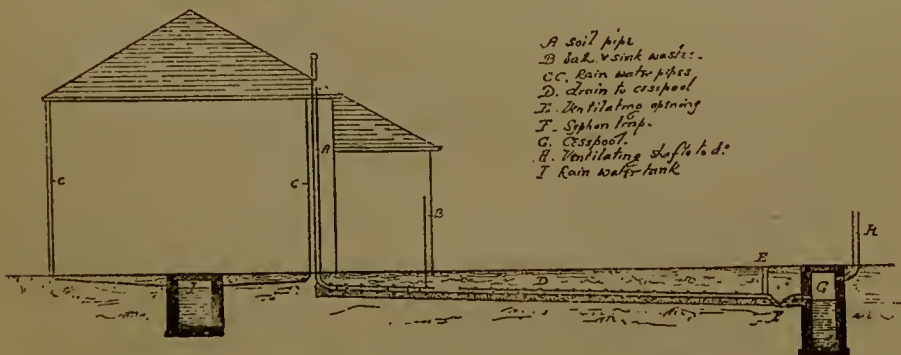 A soil pipe
B bath & sink waste.
CC. Rain water pipes
D. drain to cesspool
E. Ventilating opening
F. Syphon trap.
G. Cesspool.
H. Ventilating shaft to do:
I Rain water tank
A
C
C
B
E
H
I
D
G
F